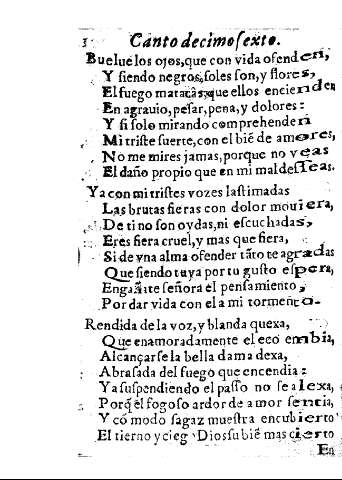 3 Canto decimosexto.
Bueluelos ojos, que con vida ofenden,
Y siendo negros, soles son, y flores,
El fuego mataràs, que ellos encienden
En agrauio, pesar, pena, y dolores:
Y si solo mirando comprehenden
Mi triste suerte, con el biẽ de amores,
No me mires jamas, porque no veas
El daño propio que en mi mal desseas.
Ya con mi tristes vozes lastimadas
Las brutas fieras con dolor mouiera,
De ti no son oydas, ni escuchadas,
Eres fiera cruel, y mas que fiera,
Si de vna alma ofender tãto te agradas
Que siendo tuya por tu gusto espera,
Engañate señora el pensamiento,
Por dar vida con el a mi tormento.
Rendida de la voz, y blanda quexa,
Que enamoradamente el eco embia,
Alcançarse la bella dama dexa,
Abrasada del fuego que encendia:
Ya suspendiendo el passo no se alexa,
Porq̃ el fogoso ardor de amor sentia,
Y cõ modo sagaz muestra encubierto
El tierno y cieg Dios su biẽ mas cierto
En